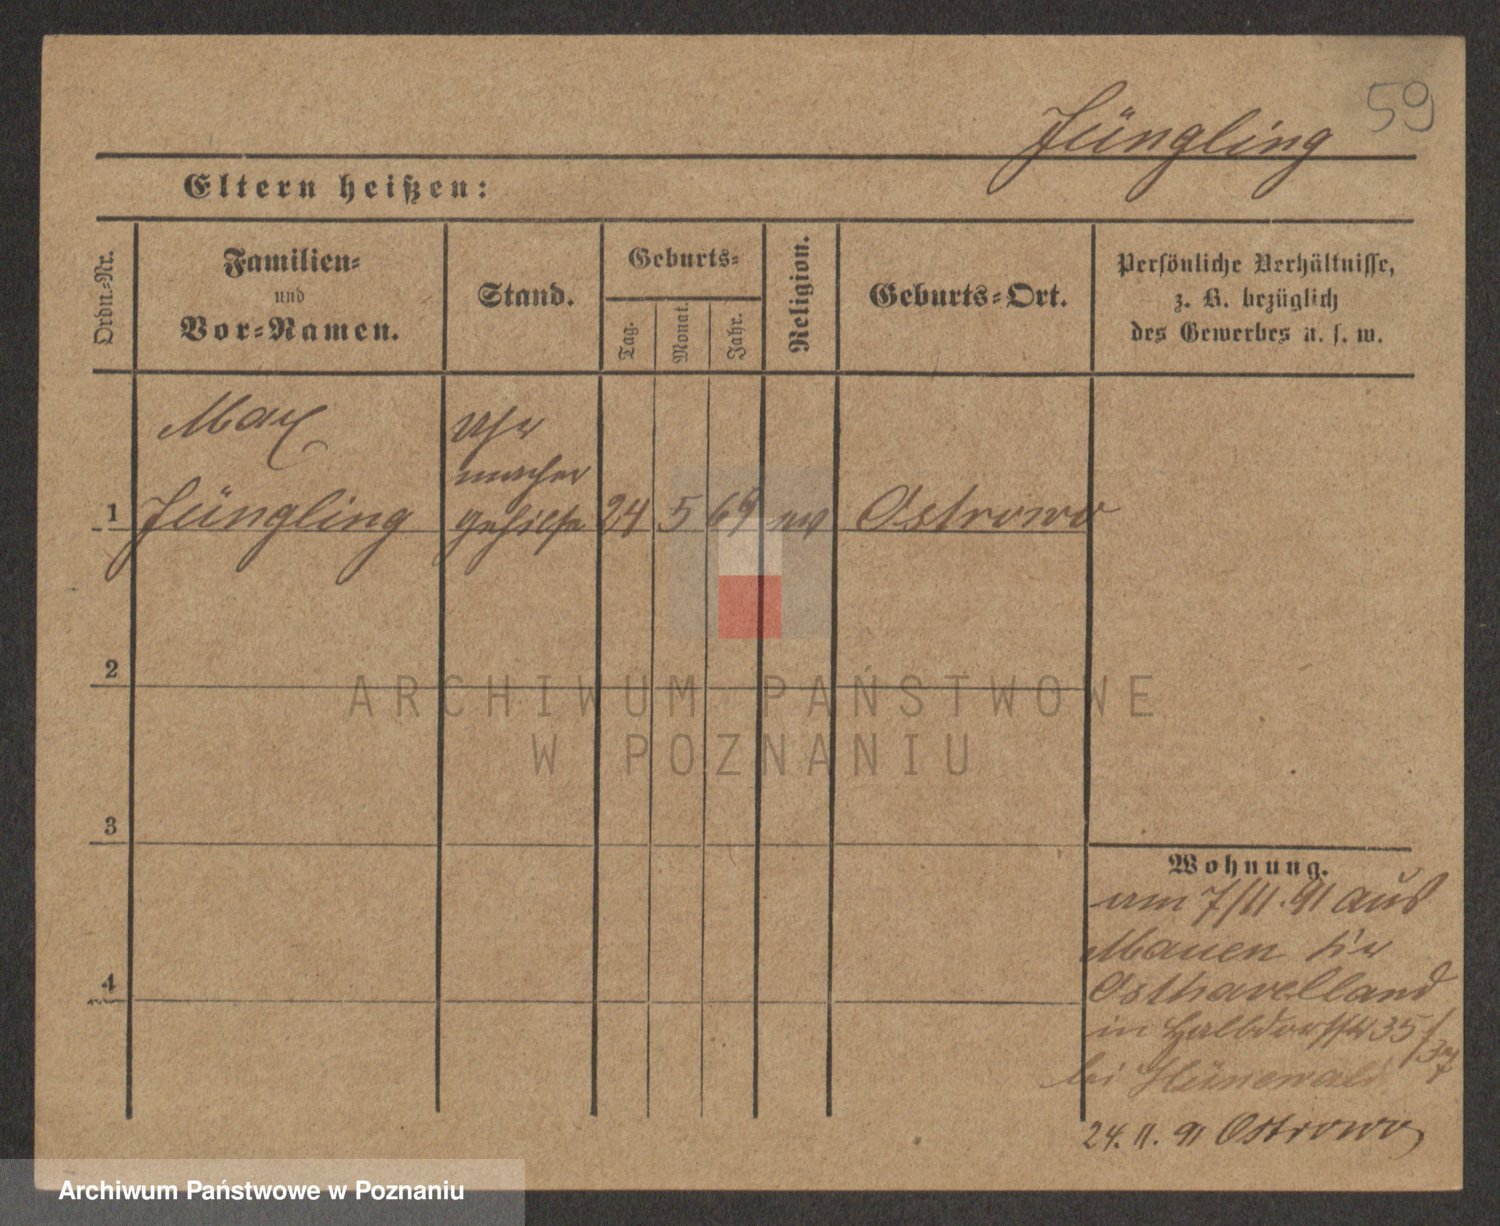 59
Jüngling
Eltern heißen:
Ordn.-Nr.
Familien-
und
Vor-Namen.
Stand.
Geburts-
Tag.
Monat.
Jahr.
Religion.
Geburts-Ort.
Persönliche Verhältnisse,
z. B. bezüglich
des Gewerbes u. s. w.
Max
Uhr
macher
1 Jüngling gehilfe 24 5 69 ev Ostrowo
2
3
4
Wohnung.
am 7/11.91 aus
Nauen
Osthavelland
in Halbdorfstr 35/37
bei
24. 11. 91 Ostrowo
ARCHIWUM PAŃSTWOWE
W POZNANIU
Archiwum Państwowe w Poznaniu